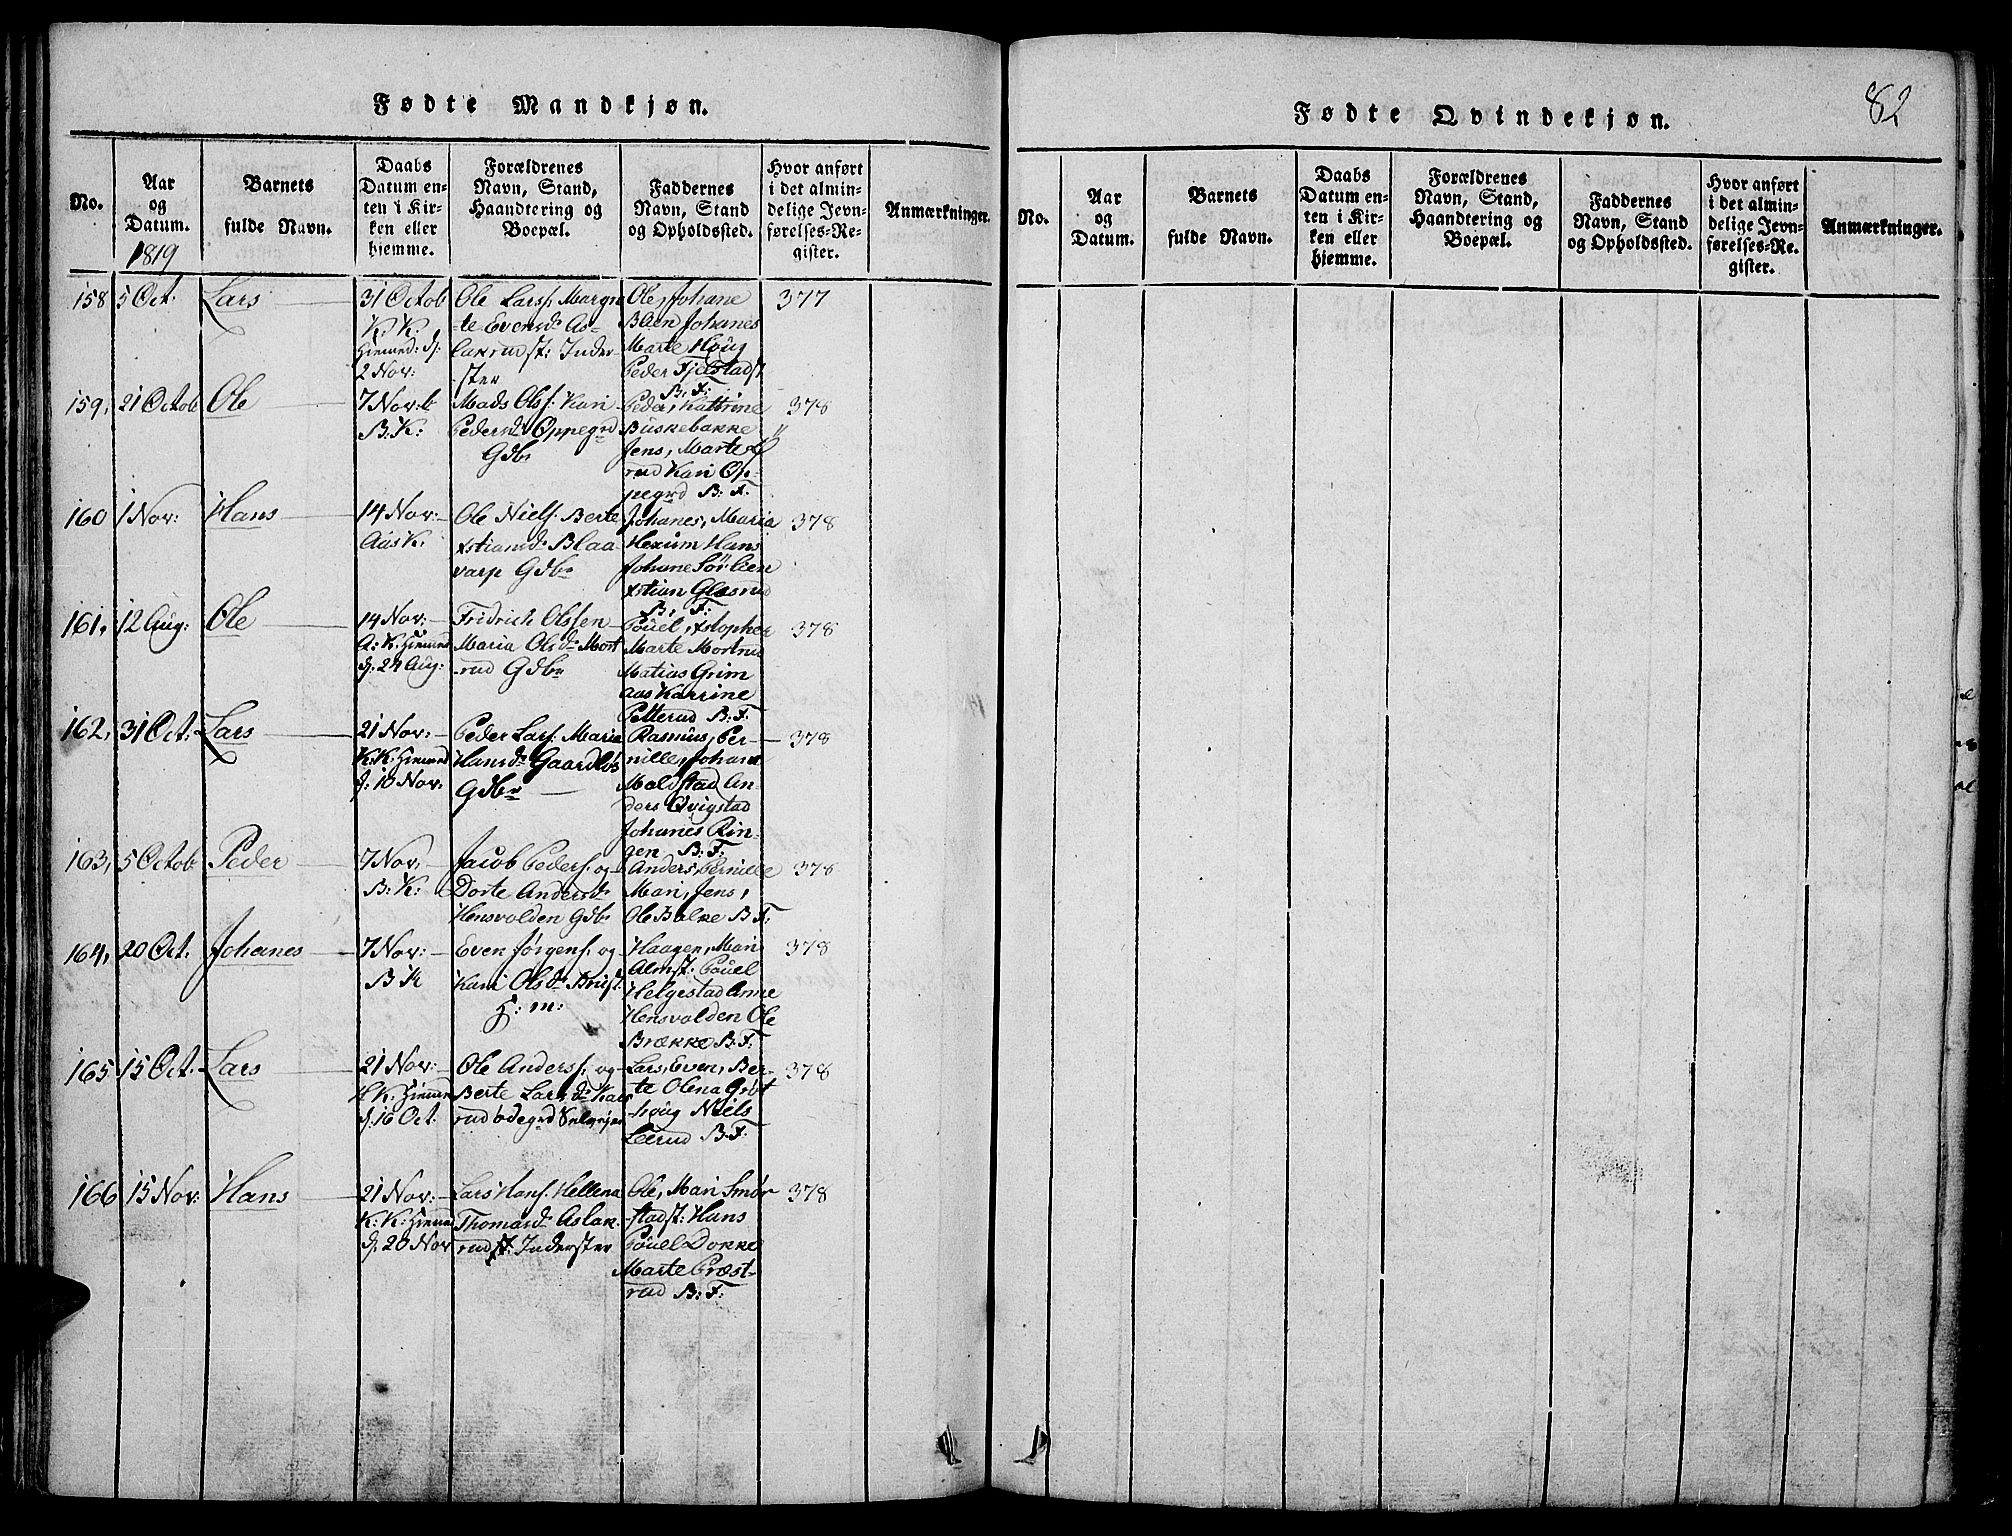 Fødte Mandkjøn.
No.
Aar
og
Datum.
1819
Barnets
fulde Navn.
Daabs
Datum en-
ten i Kir-
ken eller
hjemme.
Forældrenes
Navn, Stand,
Haandtering og
Boepæl.
Faddernes
Navn, Stand
og Opholdssted.
Hvor anført
i det almin-
delige Jevn-
førelses-Re-
gister.
Anmærkninger.
158
5 Oct.
Lars
31 Octob
K.K.
Hiemed: d.
2 Nov:
Ole Lars. Margre
-te Evensd. As-
lakrudst: Inder-
ster
Ole, Johane
Blien Johanes
Marte Houg
Peder Fjelstadst
B. F:
377
159,
21 Octob
Ole
7 Nov:b
B: K:
Mads Ols. Kari
Pedersd. Oppegrd
Gdbr
Peder, Kattrine
Buskebakke
Jens, Marte
rud Kari Op-
pegrd B: F.
378
160
1 Nov:
Hans
14 Nov:
Aas K.
Ole Niels. Berte
xstiansd. Blaa
varp Gdbr
Johanes, Maria
Hexum Hans
Johane Sörlien
xstian Glæsrud
B. F:
378
161,
12 Aug:
Ole
14 Nov:
A: K. Hiemed
d. 24 Aug:
Fridrich Olssen
Maria Olsd. Mort
-rud Gdbr
Pouel, xstopher
Marte Mortrud
Matias Grim
aas Karrine
Petterud B. F.
378
162,
31 Oct.
Lars
21 Nov:
K.K: Hiemed
d: 10 Nov.
Peder Lars. Maria
Hansd. Gaardlös
Gdbr
Rasmus, Per-
nille, Johane
Moldstad An-
ders Qvigstad
Johanes Rin-
gen B: F.
378
163,
5 Octob
Peder
7 Nov.
B: K:
Jacob Peders. og
Dorte Andersd.
Hensvolden Gdbr
Anders, Pernille
Mari, Jens,
Ole Balke B F:
378
164,
20 Oct.
Johanes
7 Nov:
B K
Even Jörgens. og
Kari Olsd. Brust.
H: m:
Haagen, Mari
Almst: Pouel
Helgestad Anne
Hensvolden Ole
Brække B. F:
378
165
15 Oct.
Lars
21 Nov:
K K. Hiemed
d: 16 Oct.
Ole Anders. og
Berte Larsd. Kars
rud ødegrd Selvejer
Lars, Even, Ber-
te Olena Gröt
-houg Niels
Leerud B. F.
378
166
15 Nov:
Hans
21 Nov:
K: K: Hiemed
d. 20 Nov
Lars Hans. Hellena
Thomasd. Aslak.
rudst: Inderster
Ole, Mari Smør
-stadst: Hans
Pouel Dokke
Marte Præst-
rud B: F.
378
82
Fødte Qvindekjøn.
No.
Aar
og
Datum.
Barnets
fulde Navn.
Daabs
Datum en-
ten i Kir-
ken eller
hjemme.
Forældrenes
Navn, Stand,
Haandtering og
Boepæl.
Faddernes
Navn, Stand
og Opholdssted.
Hvor anført
i det almin-
delige Jevn-
førelses-Re-
gister.
Anmærkninger.